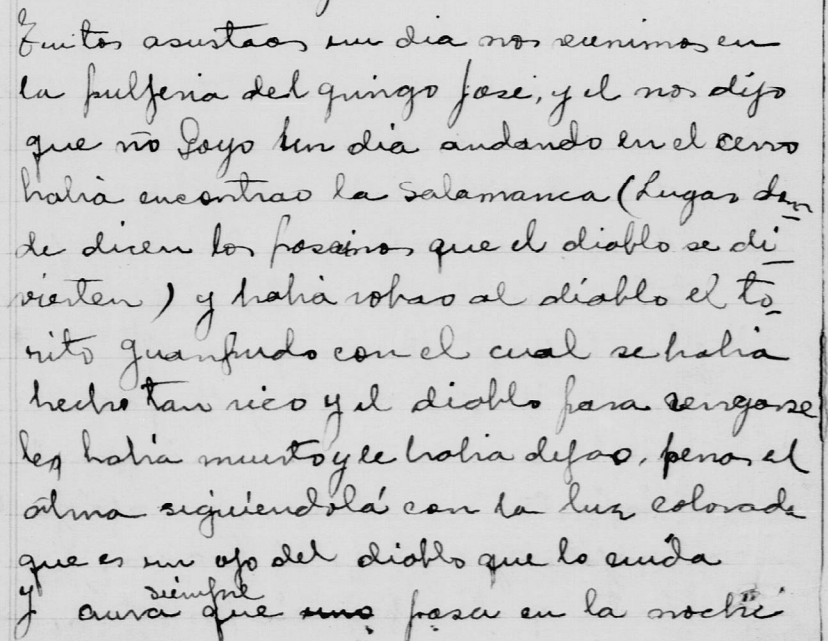 tuitos asustaos un dia nos reunimos en
la pulperia del gringo José, y el nos dijo
que ño Goyo un dia andando en el cerro
habia encontrao la Salamanca (Lugar don
de dicen los paisanos que el diablo se di
vierten) y habia robao al diablo el to
rito guampudo con el cual se habia
hecho tan rico y el diablo para vengarse
les habia muerto y le habia dejao, penar el
alma siguiéndolá con la luz colorada
que es un ojo del diablo que lo cuida
y aura siempre que pasa en la nochi